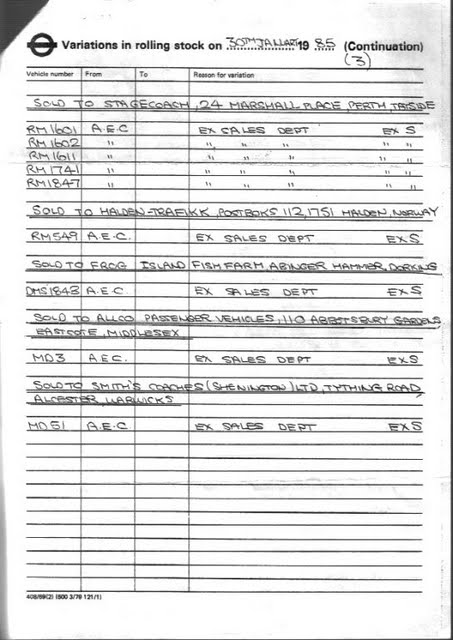 Variations in rolling stock on 30TH JANUARY 19 85 (Continuation)
(3)
Vehicle number From To Reason for variation
SOLD TO STAGECOACH, 24 MARSHALL PLACE, PERTH, TAYSIDE
RM1601 A.E.C EX SALES DEPT EX S
RM1602 " " " " " "
RM1611 " " " " " "
RM1741 " " " " " "
RM1847 " " " " " "
SOLD TO HALDEN-TRAFIKK, POSTBOKS 112, 1751 HALDEN, NORWAY
RM549 A.E.C. EX SALES DEPT EX S
SOLD TO FROG ISLAND FISH FARM, ABINGER HAMMER, DORKING
DMS1843 A.E.C. EX SALES DEPT EX S
SOLD TO ALLCO PASSENGER VEHICLES, 110 ABBOTSBURY GARDENS
EASTCOTE, MIDDLESEX
MD3 A.E.C. EX SALES DEPT EX S
SOLD TO SMITH'S COACHES (SHENINGTON) LTD, TYTHING ROAD,
ALCESTER, WARWICKS
MD51 A.E.C EX SALES DEPT EX S
408/69(2) (500 3/79 121/1)